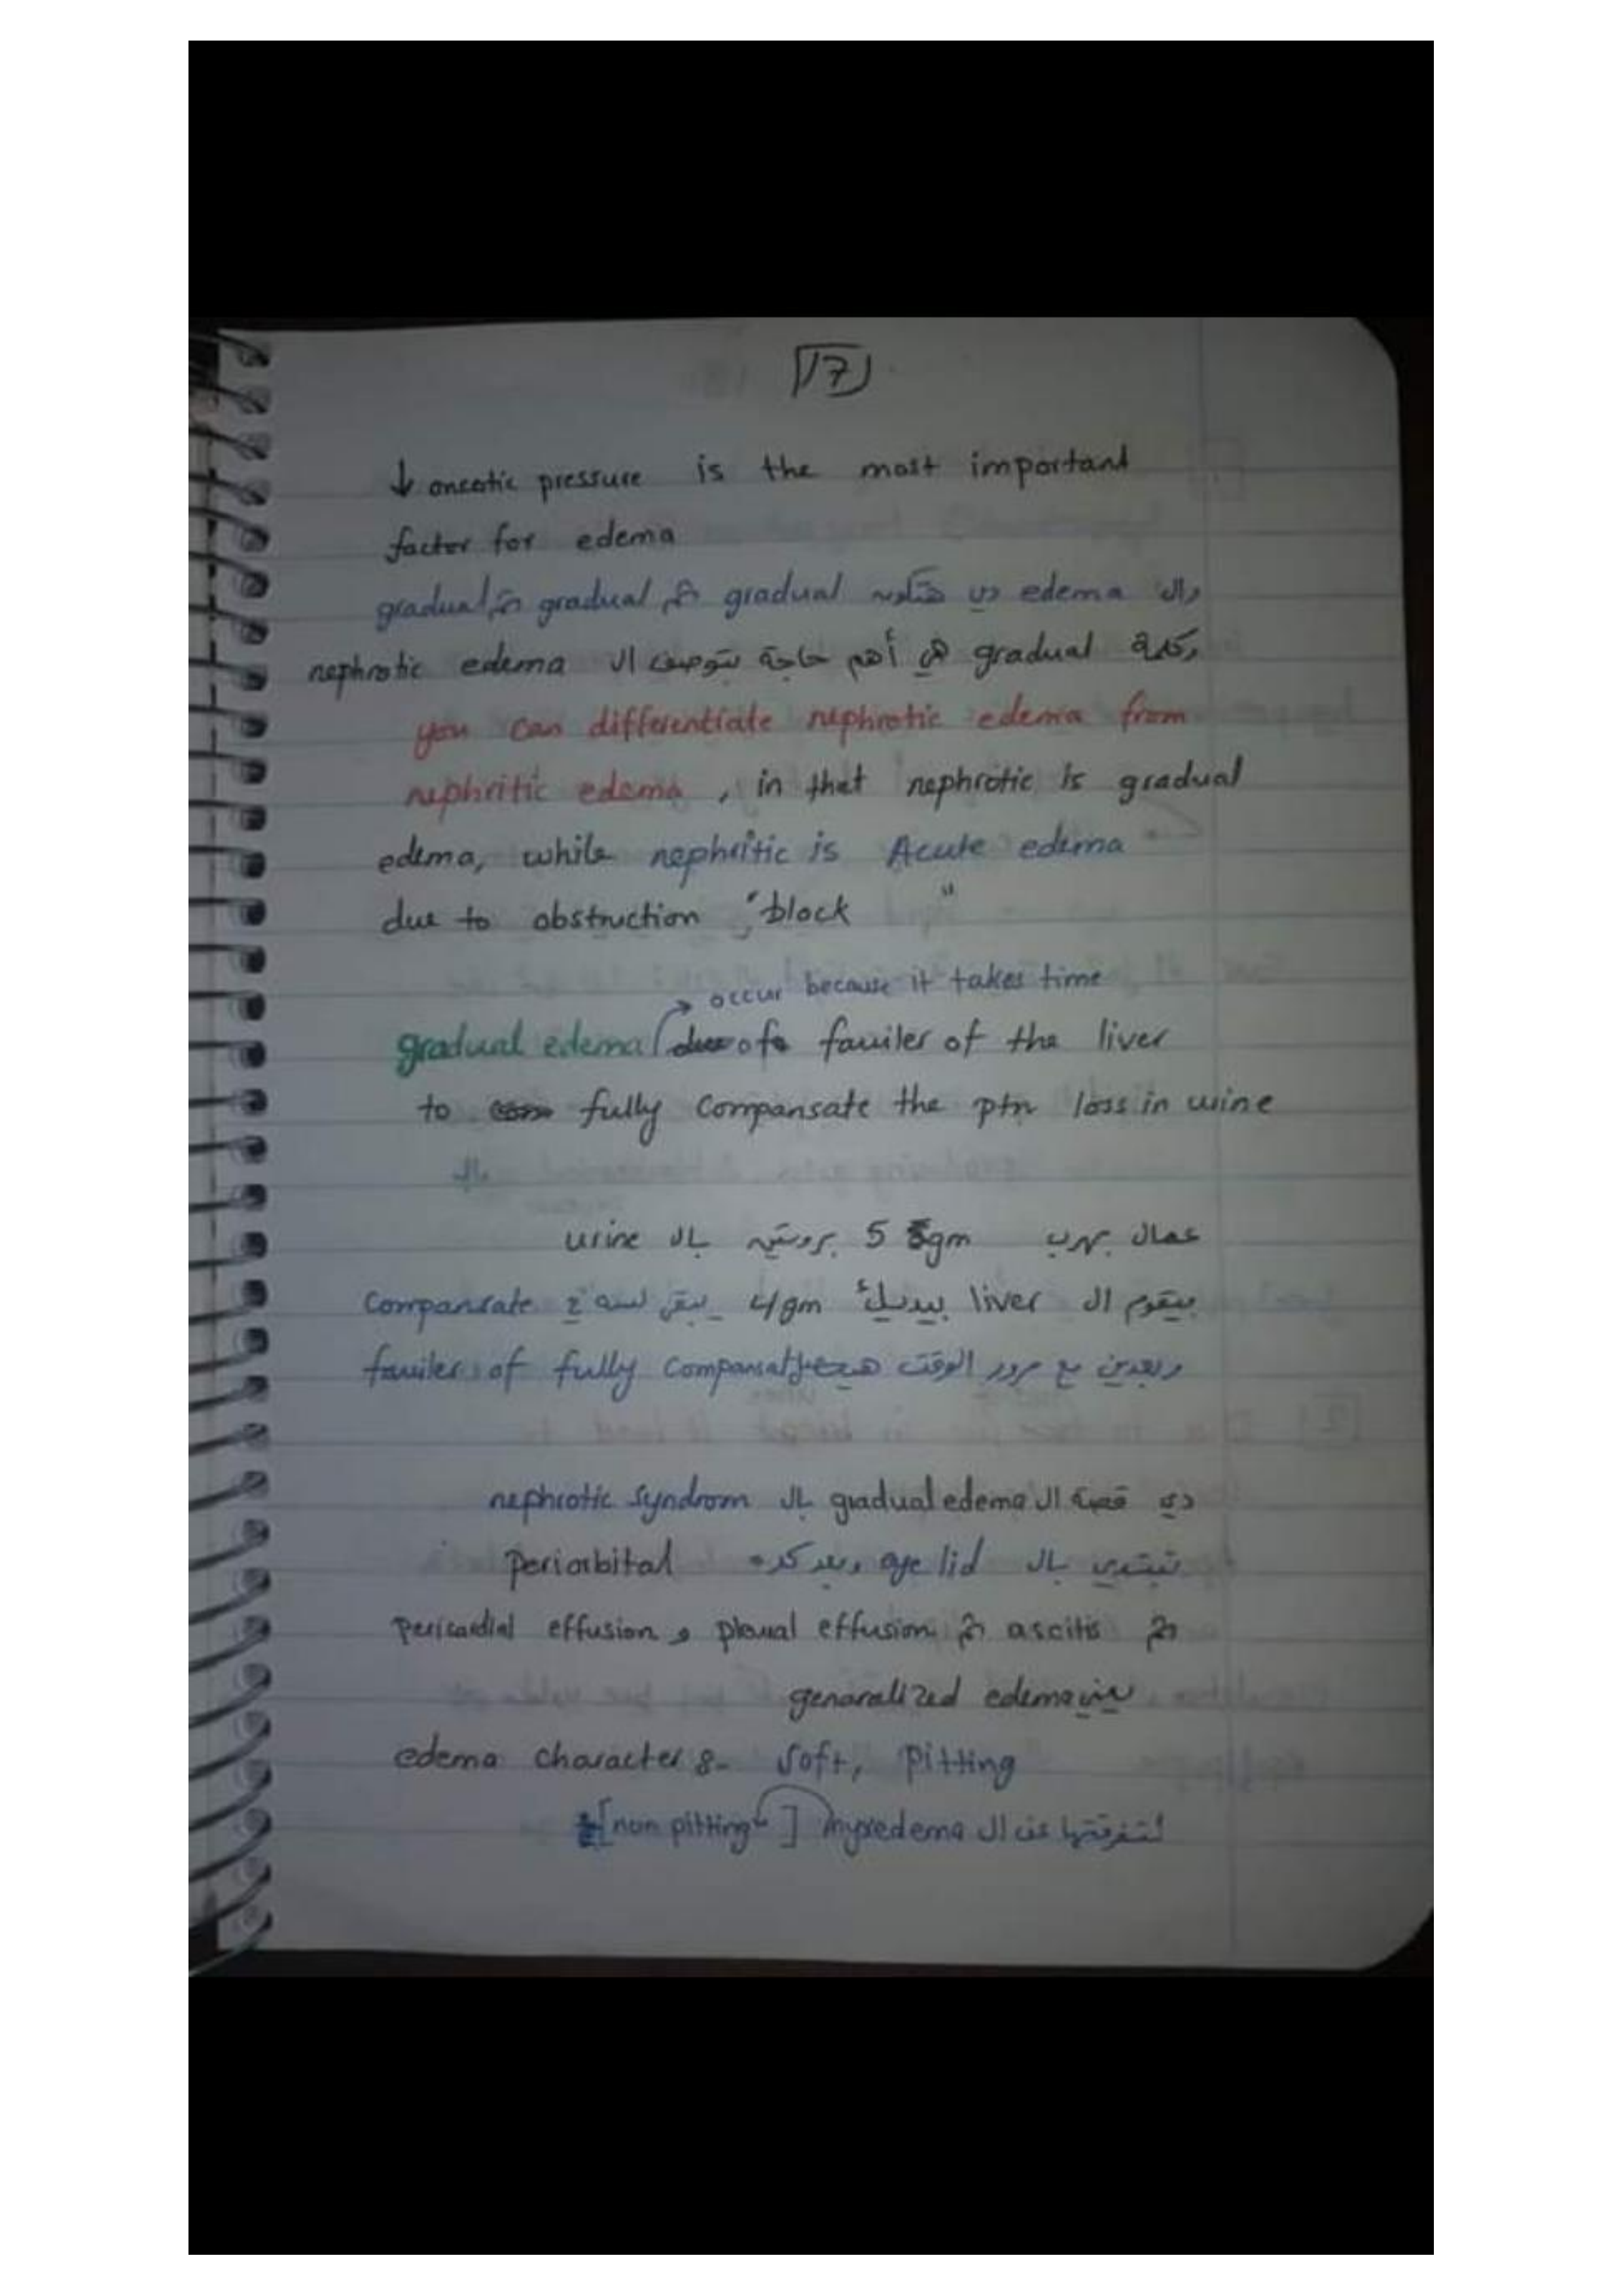 17
↓ oncotic pressure is the most important
factor for edema
وال edema دي هتكون gradual ثم gradual ثم gradual
وكلمة gradual هي أهم حاجة بتوصف ال nephrotic edema
you can differentiate nephrotic edema from
nephritic edema , in that nephrotic is gradual
edema, while nephritic is Acute edema
due to obstruction "block "
occur because it takes time
gradual edema of failuer of the liver
to fully compansate the ptn loss in urine
عمال بهرب 5 gm بروتين بال urine
بيقوم ال liver بيديلك 4gm يبقى لسه compansate
وبعدين مع مرور الوقت هيحصل failuer of fully compansat
دي قصة ال gradual edema بال nephrotic syndrom
تبتدي بال eye lid وبعد كده periorbital
ثم ascitis ثم pleural effusion و pericardial effusion
يعني genaralized edema
edema character :- soft, pitting
لتفرقتها عن ال myxedema [non pitting]